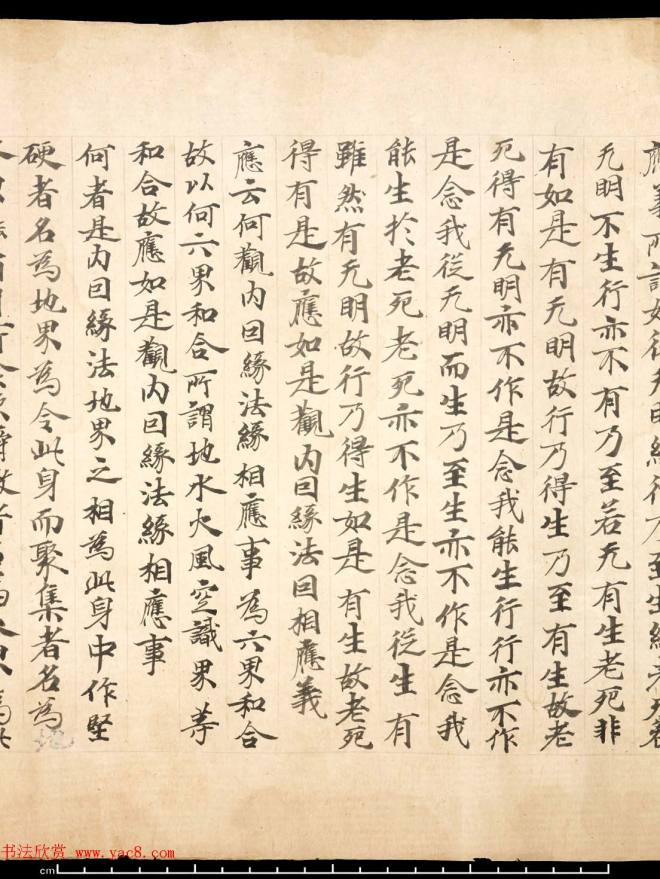 應義所謂始從无明緣行乃至生緣老死若
无明不生行亦不有乃至若无有生老死非
有如是有无明故行乃得生乃至有生故老
死得有无明亦不作是念我能生行行亦不作
是念我從无明而生乃至生亦不作是念我
能生於老死老死亦不作是念我從生有
雖然有无明故行乃得生如是有生故老死
得有是故應如是觀內因緣法因相應義
應云何觀內因緣法緣相應事為六界和合
故以何六界和合所謂地水火風空識界等
和合故應如是觀內因緣法緣相應事
何者是內因緣法地界之相為此身中作堅
硬者名為地界為令此身而聚集者名為地
书法欣赏 www.yac8.com
cm